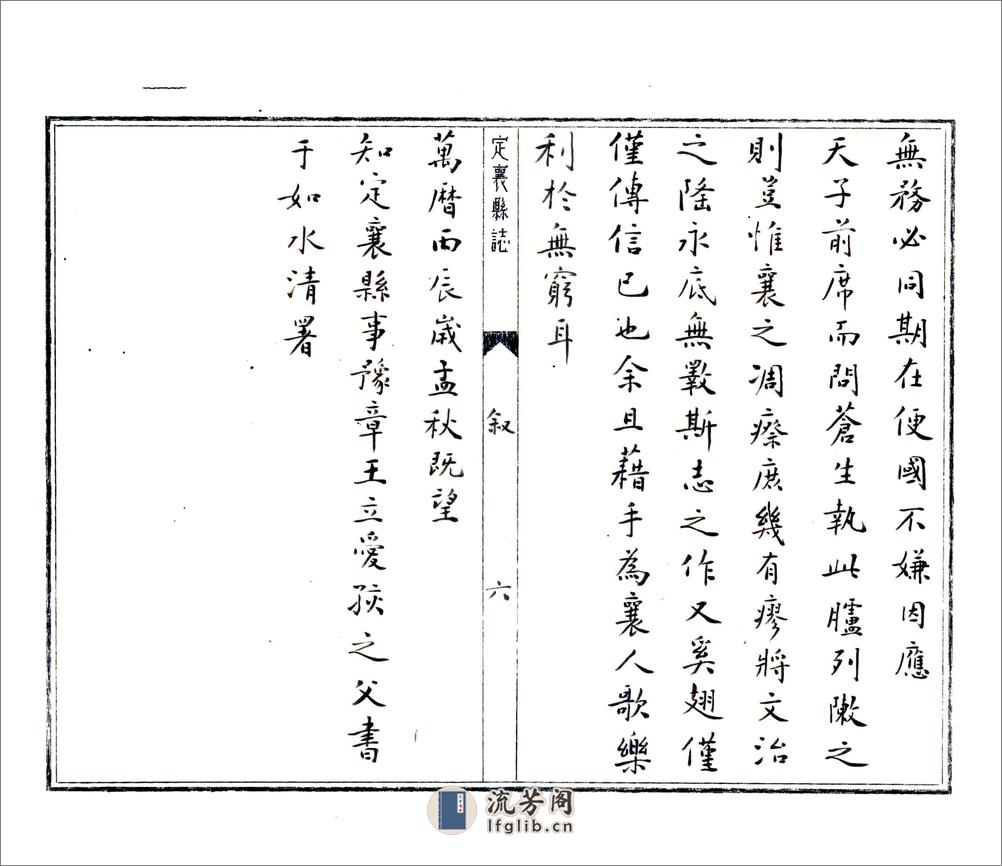 無務必同期在便國不嫌因應
天子前席而問蒼生執此臚列敶之
則豈惟襄之凋瘵庶幾有瘳將文治
之隆永底無斁斯志之作又奚翅僅
僅傳信已也余且藉手為襄人歌樂
利於無窮耳
定襄縣誌
叙
六
萬暦丙辰歲孟秋既望
知定襄縣事豫章王立愛之父書
于如水清署
流芳阁
lfglib.cn